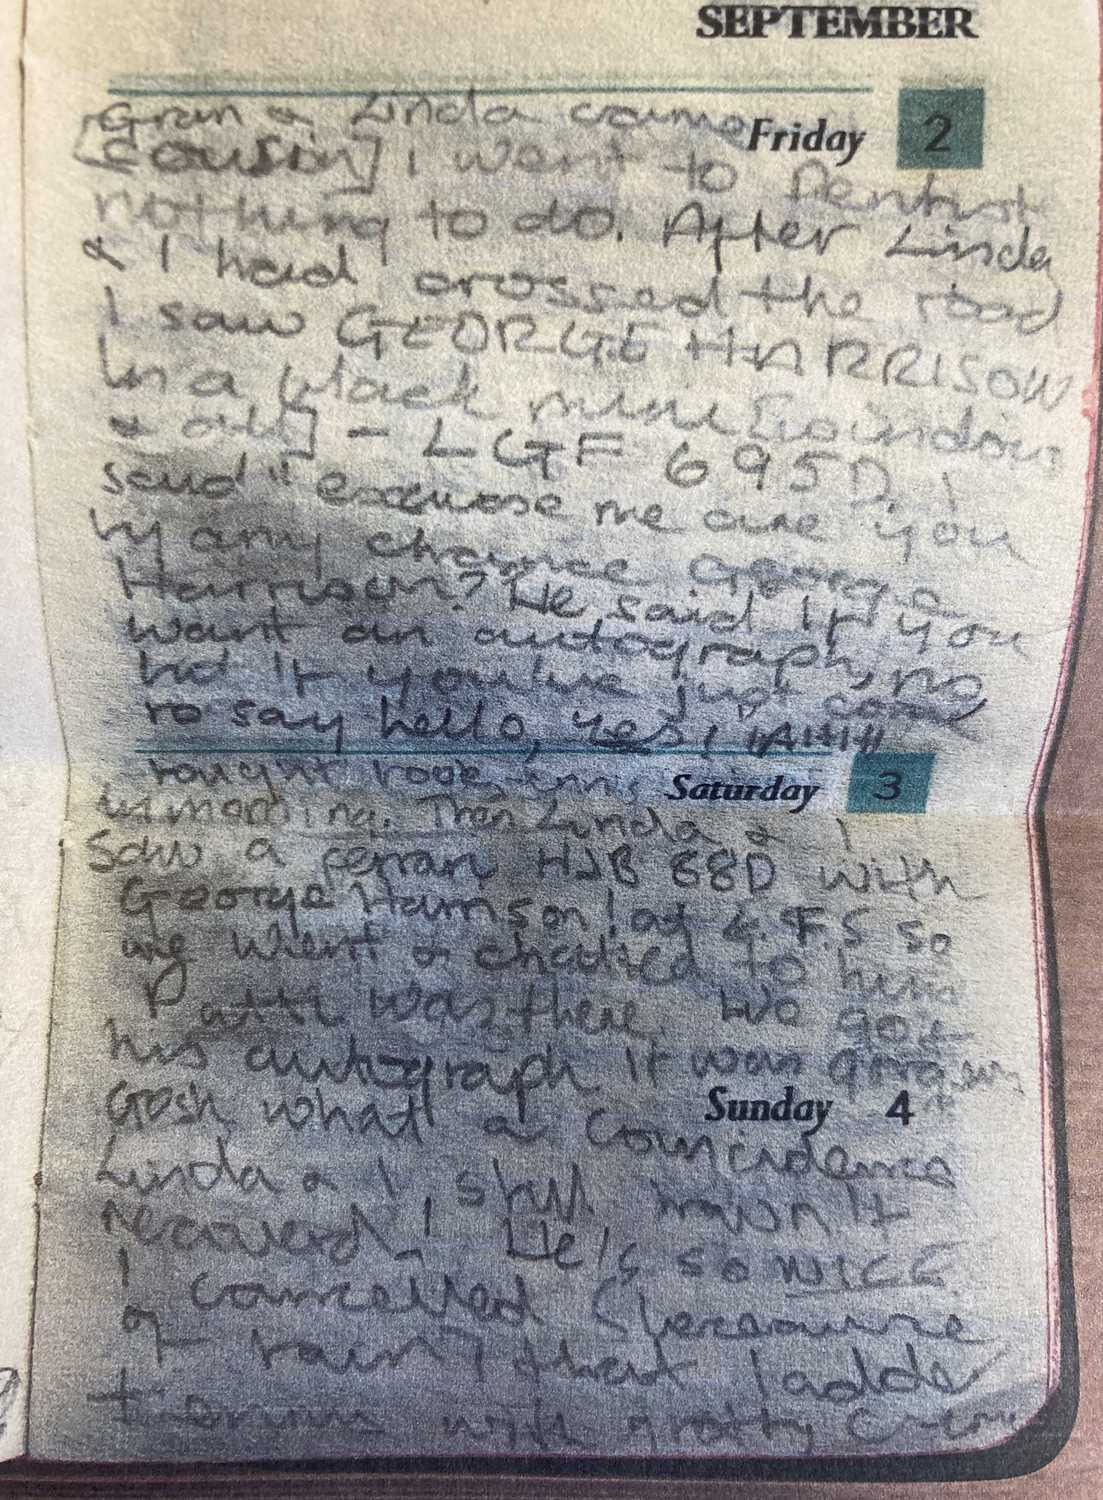 SEPTEMBER
Friday 2
Gran & Linda came
[cousin] I went to Dentist
nothing to do. After Linda
& I had crossed the road
I saw GEORGE HARRISON
in a black mini [windows
& all] - LGF 695D. I
said "excuse me are you
by any chance George
Harrison? He said If you
want an autograph, no
but If you've just come
to say hello, Yes!
Saturday 3
in morning. Then Linda & I
Saw a ferrari HJB 88D with
George Harrison! at so
we went & chatted to him
Patti was there. We got
his autograph It was
Sunday 4
Gosh what a Coincidence
Linda & I still haven't
recovered! He's so NICE
I cancelled [because
of rain] that ladder
with grotty